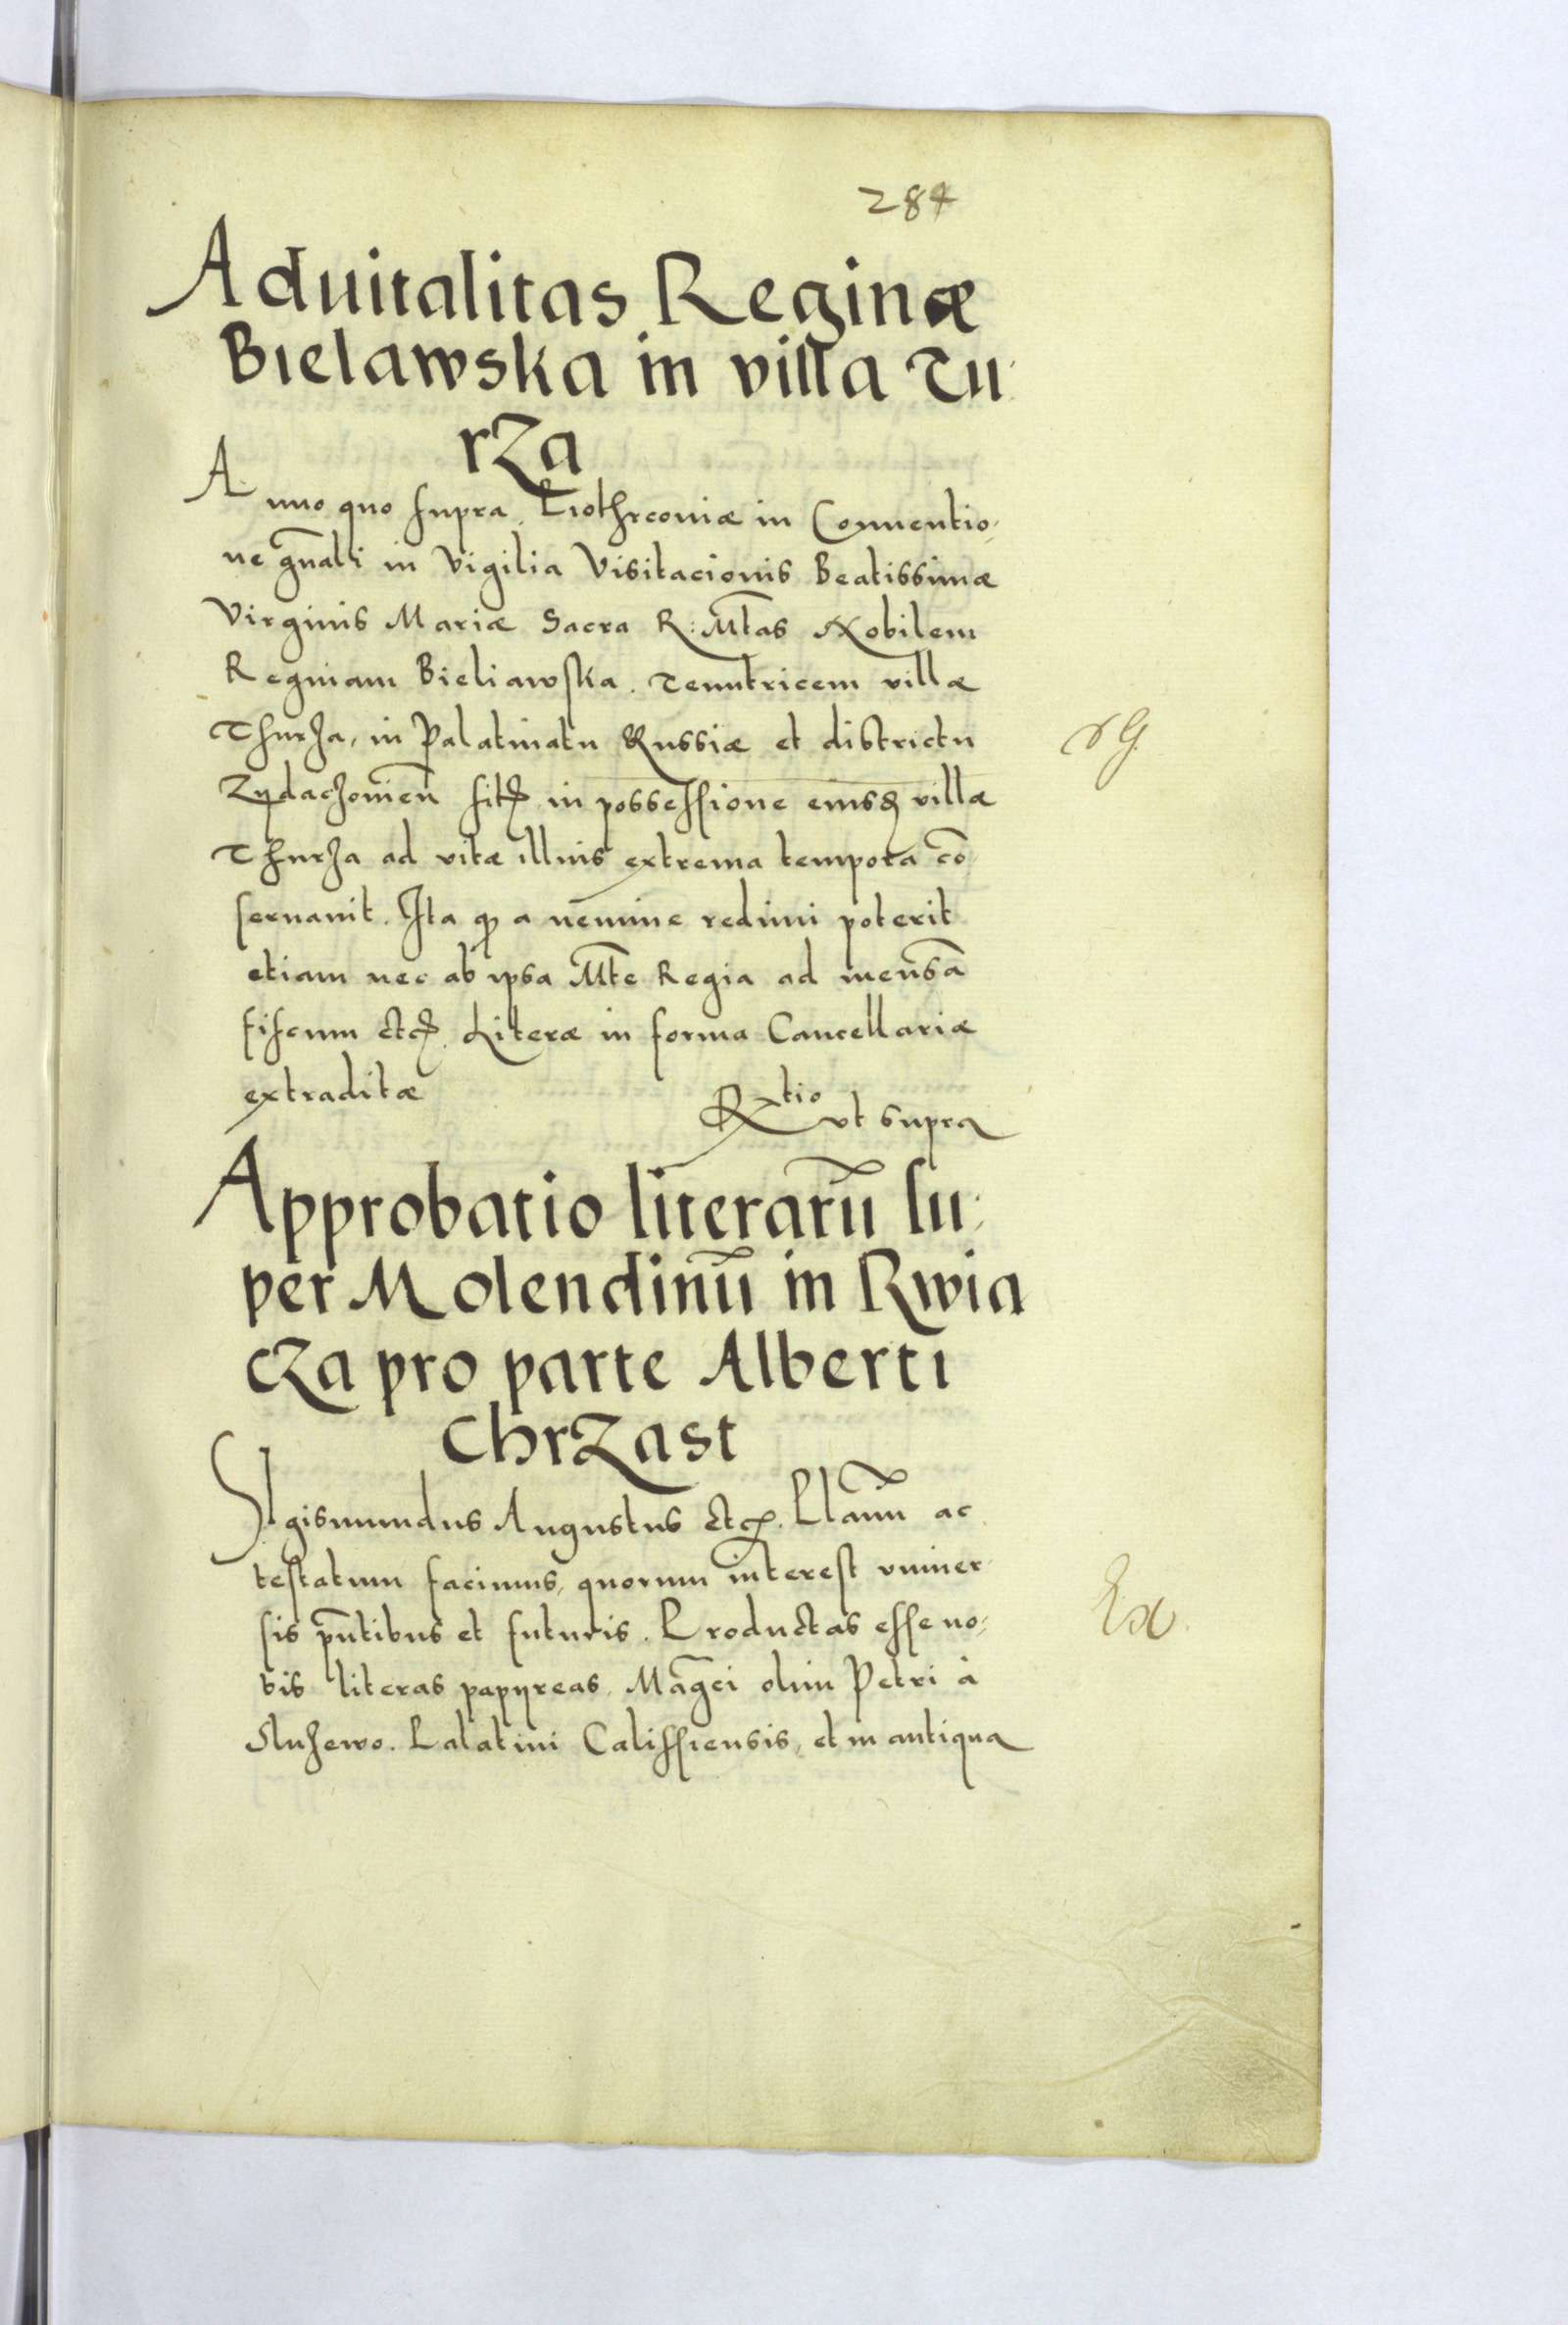 284
Aduitalitas Reginæ
Bielawska in villa Tu
rza
Anno quo supra Piothrcoviæ in Conuentio,
ne gn̄ali in Vigilia Visitacionis Beatissimæ
Virginis Mariæ Sacra R: Mt̄as Nobilem
Reginam Bieliawska. Tenutricem villæ
Thurza, in Palatinatu Russiæ et districtu
Zydaczouien̄ sit. in possessione eiusd. villæ
Thurza ad vitæ illius extrema tempora cō
seruauit. Ita q a nemine redimi poterit
etiam nec ab ipsa Mt̄e Regia ad mensā
fiscum etc. Literæ in forma Cancellariæ
extraditæ
Rtio vt supra
Approbatio literarū su,
per Molendinū in Rwia
cza pro parte Alberti
Chrzast
Sigismundus Augustus etc. Planū ac
testatum facimus, quorum interest vniuer
sis pn̄tibus et futuris. Productas esse no,
bis literas papyreas. Mag̃ci olim Petri à
Sluzewo. Palatini Calissiensis, et in antiqua